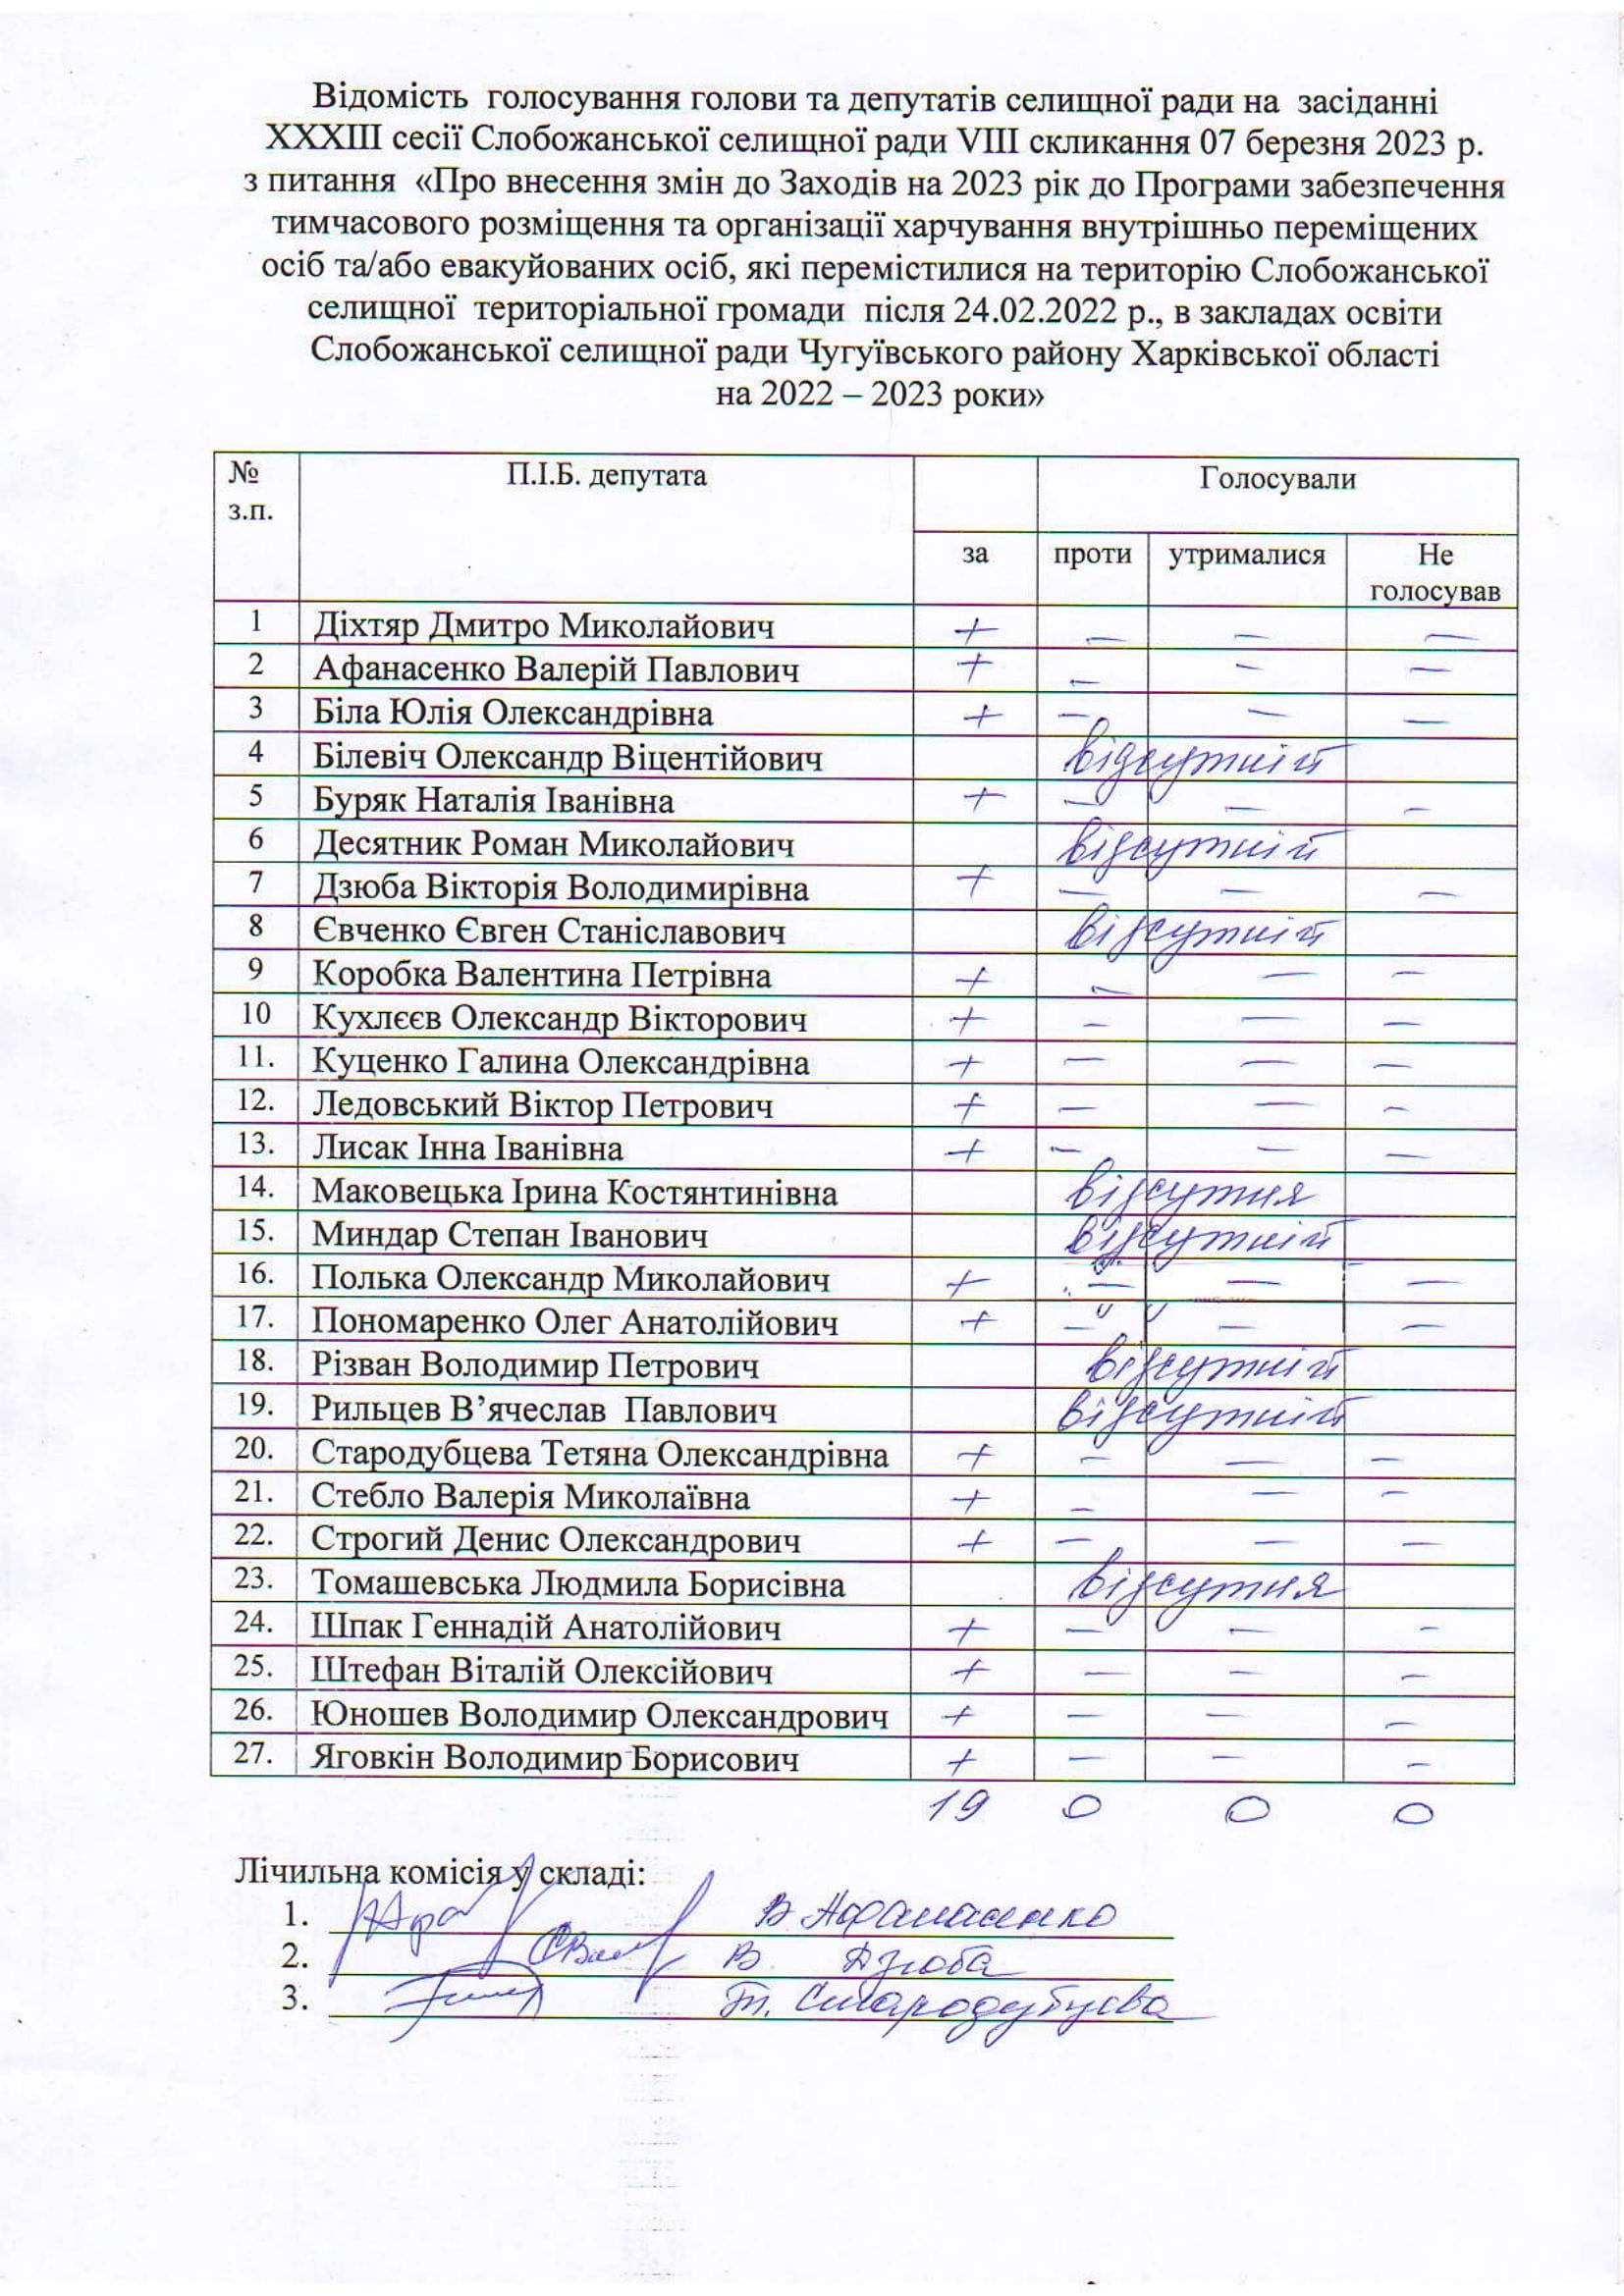 Відомість голосування голови та депутатів селищної ради на засіданні
XXXIII сесії Слобожанської селищної ради VIII скликання 07 березня 2023 р.
з питання «Про внесення змін до Заходів на 2023 рік до Програми забезпечення
тимчасового розміщення та організації харчування внутрішньо переміщених
осіб та/або евакуйованих осіб, які перемістилися на територію Слобожанської
селищної територіальної громади після 24.02.2022 р., в закладах освіти
Слобожанської селищної ради Чугуївського району Харківської області
на 2022 – 2023 роки»
№ з.п. П.І.Б. депутата Голосували
за проти утрималися Не голосував
1 Діхтяр Дмитро Миколайович + – – –
2 Афанасенко Валерій Павлович + – – –
3 Біла Юлія Олександрівна + – – –
4 Білевіч Олександр Віцентійович відсутній
5 Буряк Наталія Іванівна + – – –
6 Десятник Роман Миколайович відсутній
7 Дзюба Вікторія Володимирівна + – – –
8 Євченко Євген Станіславович відсутній
9 Коробка Валентина Петрівна + – – –
10 Кухлєєв Олександр Вікторович + – – –
11. Куценко Галина Олександрівна + – – –
12. Ледовський Віктор Петрович + – – –
13. Лисак Інна Іванівна + – – –
14. Маковецька Ірина Костянтинівна відсутня
15. Миндар Степан Іванович відсутній
16. Полька Олександр Миколайович + – – –
17. Пономаренко Олег Анатолійович + – – –
18. Різван Володимир Петрович відсутній
19. Рильцев В’ячеслав Павлович відсутній
20. Стародубцева Тетяна Олександрівна + – – –
21. Стебло Валерія Миколаївна + – – –
22. Строгий Денис Олександрович + – – –
23. Томашевська Людмила Борисівна відсутня
24. Шпак Геннадій Анатолійович + – – –
25. Штефан Віталій Олексійович + – – –
26. Юношев Володимир Олександрович + – – –
27. Яговкін Володимир Борисович + – – –
19 0 0 0
Лічильна комісія у складі:
1. В Афанасенко
2. В. Дзюба
3. Т. Стародубцева